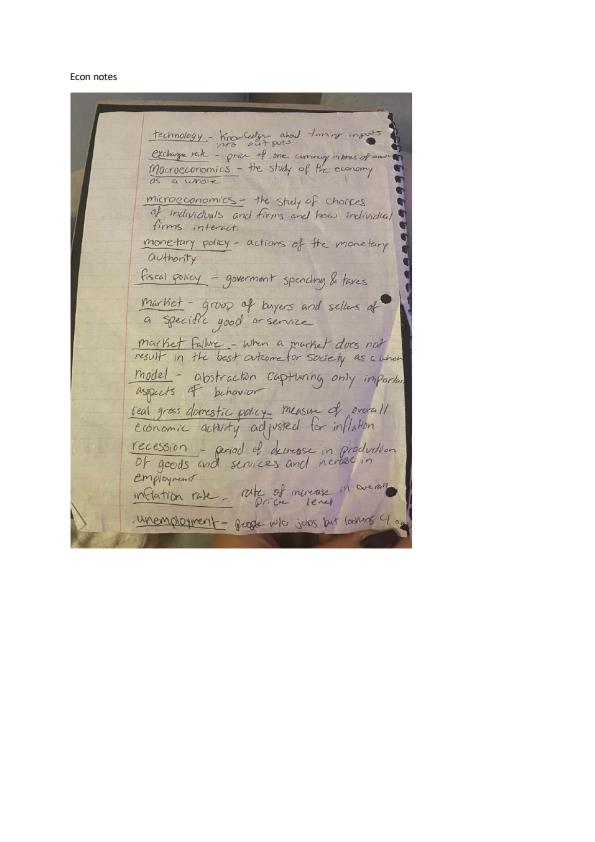 Econ notes
technology - Knowledge about turning inputs
into outputs
exchange rate - price of one currency in terms of another
Macroeconomics - the study of the economy
as a whole
microeconomics - the study of choices
of individuals and firms and how individual
firms interact.
monetary policy - actions of the monetary
authority
fiscal policy - goverment spending & taxes
market - group of buyers and sellers of
a specific good or service
market failure - when a market does not
result in the best outcome for society as a whole
model - abstraction capturing only important
aspects of behavior
real gross domestic policy - measure of overall
economic activity adjusted for inflation
recession - period of decrease in production
of goods and services and increase in
employment
inflation rate - rate of increase in overall
price level
unemployment - people w/o jobs but looking 4